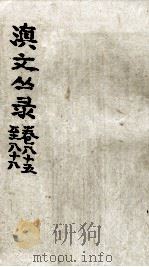 滇文丛录
卷八十五
至八十八
研狗
mtoou.info